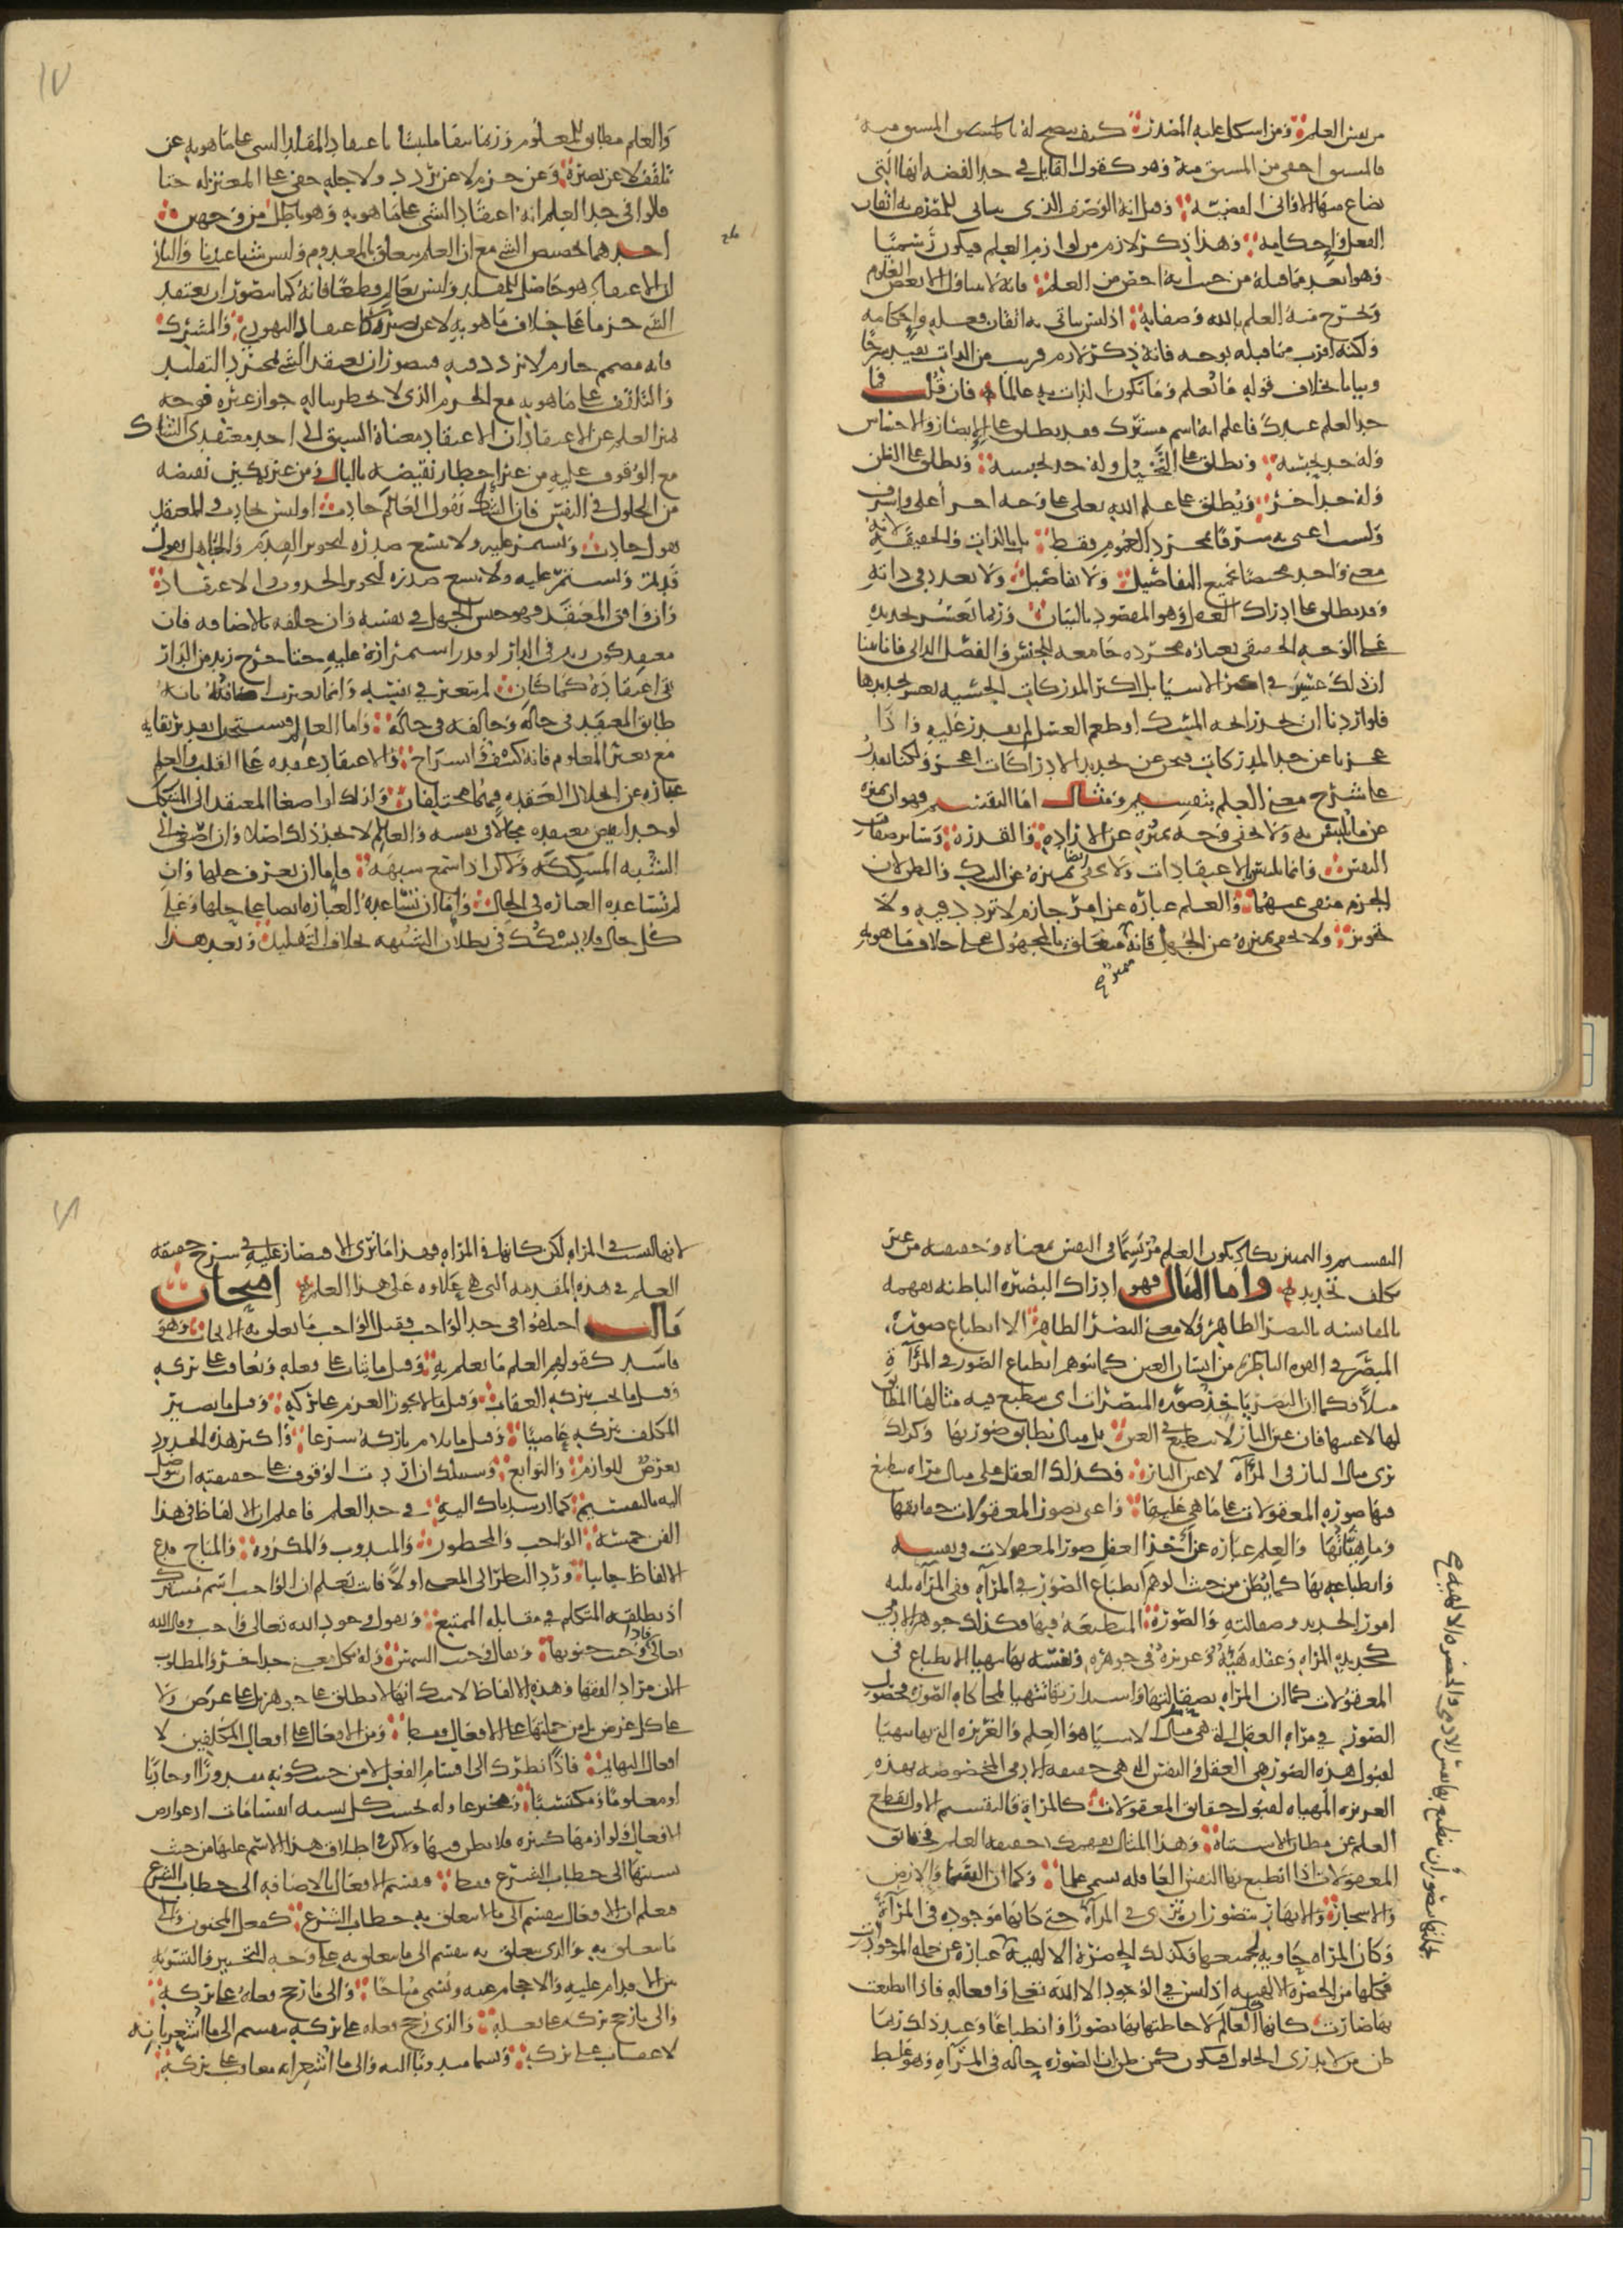 من نفس العلم ومن اسكل عليه المصدر كيف يتضح له بالمشتق المشتق منه
فالمشتق اخفى من المشتق منه وهو كقول القايل في حد الفضه انها التي
تصاغ منها الاواني الفضيه وقيل انه الوصف الذي يتاتى للمتصف به اتقان
الفعل واحكامه وهذا ذكر لازم من لوازم العلم فيكون رسميا
وهو ابعد مما قبله من حيث انه اخص من العلم فانه لا يتناول الا بعض العلوم
وتخرج منه العلم بالله وصفاته اذ ليس يتاتى به اتقان فعله واحكامه
ولكنه اقرب مما قبله بوجه فانه ذكر لازم قريب من الذات يفيد شرحا
وبيانا بخلاف قوله ما تعلم وما تكون الذات به عالما فان قلت فما
حد العلم عندك فاعلم انه اسم مشترك فقد يطلق على الابصار والاحساس
وله حد بحسبه ويطلق على التخيل وله حد بحسبه ويطلق على الظن
وله حد اخر ويطلق على علم الله تعالى على وجه اخر اعلى واشرف
ولست اعني به شرفا بمجرد العموم فقط بل بالذات والحقيقه لانه
معنى واحد محيط بجميع التفاصيل ولا تفاصيل ولا تعدد في ذاته
وقد يطلق على ادراك العقل وهو المقصود بالبيان وربما تعسر تحديده
على الوجه الحقيقي بعباره محرره جامعه للجنس والفصل الذاتي فانا بينا
ان ذلك عسير في اكثر الاشيا بل اكثر المدركات الحسيه يعسر تحديدها
فلو اردنا ان نحد رايحه المسك او طعم العسل لم نقدر عليه واذا
عجزنا عن حد المدركات فنحن عن تحديد الادراكات اعجز ولكنا نقدر
على شرح معنى العلم بتقسيم ومثال اما التقسيم فهو ان نميزه
عن ما يلتبس به ولا يخفى وجه تميزه عن الاراده والقدره وساير صفات
النفس وانما يلتبس بالاعتقادات ولا يخفى ايضا تميزه عن الشك والظن لان
الجزم منتفى عنهما والعلم عباره عن امر جازم لا تردد فيه ولا
تجويز ولا يخفى تميزه عن الجهل فانه متعلق بالمجهول على خلاف ما هو به
والعلم مطابق للمعلوم وربما يبقا ملتبسا باعتقاد المقلد الشي على ما هو به عن
تلقف لا عن بصيره وعن جزم لا عن تردد ولاجله خفى على المعتزله حتا
قالوا في حد العلم انه اعتقاد الشي على ما هو به وهو باطل من وجهين
احدهما تخصيص الشي مع ان العلم يتعلق بالمعدوم وليس شيا عندنا والثاني
ان الاعتقاد هو حاصل للمقلد وليس بعالم قطعا فانه كما يتصور ان يعتقد
الشي جزما على خلاف ما هو به لا عن بصيره كاعتقاد اليهودي والمشرك
فانه مصمم جازم لا تردد فيه فيتصور ان يعتقد الشي بمجرد التقليد
والتلقف على ما هو به مع الجزم الذي لا يخطر بباله جواز غيره فوجه
تميز العلم عن الاعتقاد ان الاعتقاد معناه السبق الى احد معتقدي الشاك
مع الوقوف عليه من غير اخطار نقيضه بالبال ومن غير تمكين نقيضه
من الحلول في النفس فان الشاك يقول العالم حادث او ليس بحادث والمعتقد
يقول حادث ويستمر عليه ولا يتسع صدره لتجويز القدم والجاهل يقول
قديم ويستمر عليه ولا يتسع صدره لتجويز الحدوث والاعتقاد
وان وافق المعتقد فهو جنس من الجهل في نفسه وان خالفه بالاضافه فان
معتقد كون زيد في الدار لو قدر استمراره عليه حتا خرج زيد من الدار
بقي اعتقاده كما كان لم يتغير في نفسه وانما تغيرت اضافته بانه
طابق المعتقد في حاله وخالفه في حاله واما العلم فيستحيل تقدير بقايه
مع تغير المعلوم فانه كشف وانشراح والاعتقاد عقده على القلب والعلم
عباره عن انحلال العقده فهما مختلفان ولذلك لو اصغا المعتقد الى المشكك
لوجد لنقيض معتقده مجالا في نفسه والعالم لا يجد ذلك اصلا وان اصغى الى
الشبه المشككه ولكن اذا سمع شبهه فاما ان يعرف حلها وان
لم تساعده العباره في الحال واما ان تساعده العباره ايضا على حلها وعلى
كل حال فلا يشكك في بطلان الشبهه بخلاف التقليد وبعد هذا
التقسيم والتمييز يكاد يكون العلم مرتسما في النفس بمعناه وحقيقته من غير
تكلف تحديد واما المثال فهو ادراك البصيره الباطنه نفهمه
بالمقايسه بالبصر الظاهر ولا معنى للبصر الظاهر الا انطباع صوره
المبصر في القوه الباصره من انسان العين كما يتوهم انطباع الصور في المرآة
مثلا فكما ان البصر ياخذ صوره المبصرات اي ينطبع فيه مثالها المطابق
لها لا عينها فان عين النار لا تنطبع في العين بل مثال يطابق صورتها وكذلك
يرى مثال النار في المرآة لا عين النار فكذلك العقل على مثال مرآه ينطبع
فيها صوره المعقولات على ما هي عليها واعنى بصور المعقولات حقايقها
وماهياتها والعلم عباره عن اخذ العقل صور المعقولات في نفسه
وانطباعها بها كما يظن من حيث الوهم انطباع الصور في المرآه ففي المرآه ثلثه
امور الحديد وصقالته والصورة المنطبعه فيها فكذلك جوهر الادمي
كحديد المرآه وعقله هيئه وغريزه في جوهره ونفسه بها يتهيا للانطباع في
المعقولات كما ان المرآه بصقالتها واستدارتها تتهيا لمحاكاه الصوره فحصول
الصور في مرآه العقل التي هي مثال الاشيا هو العلم والغريزه التي بها يتهيا
لقبول هذه الصور هي العقل والنفس التي هي حقيقه الادمي المخصوصه بهذه
الغريزه المهياه لقبول حقايق المعقولات كالمرآة فالتقسيم الاول يقطع
العلم عن مظان الاشتباه وهذا المثال يفهمك حقيقه العلم فحقايق
المعقولات اذا انطبع بها النفس العاقله يسمى علما وكما ان السما والارض
والاشجار والانهار يتصور ان ترى في المرآة حتى كانها موجوده في المرآة
وكان المرآه حاويه لجميعها فكذلك الحضرة الالهية عبارة عن جمله الموجودات
فكلها من الحضره الالهيه اذ ليس في الوجود الا الله تعالى وافعاله فاذا انطبعت
بها صارت كانها كل العالم لاحاطتها بها تصورا وانطباعا وعند ذلك ربما
ظن من لا يدري الحلول فيكون كمن ظن ان الصوره حاله في المرآه وهو غلط
لانها ليست في المرآه لكن كانها في المرآه فهذا ما نرى الاقتصار عليه في شرح حقيقه
العلم في هذه المقدمه التي هي علاوه على هذا العلم امتحان
ثالث اختلفوا في حد الواجب فقيل الواجب ما تعلق به الايجاب وهو
فاسد كقولهم العلم ما يعلم به وقيل ما يثاب على فعله ويعاقب على تركه
وقيل ما يجب بتركه العقاب وقيل ما لا يجوز العزم على تركه وقيل ما يصير
المكلف بتركه عاصيا وقيل ما يلام تاركه شرعا واكثر هذه الحدود
تعرض للوازم والتوابع وسبيلك ان اردت الوقوف على حقيقته ان تتوصل
اليه بالتقسيم كما ارشدناك اليه في حد العلم فاعلم ان الالفاظ في هذا
الفن خمسه الواجب والمحظور والمندوب والمكروه والمباح فدع
الالفاظ جانبا ورد النظر الى المعنى اولا فانت تعلم ان الواجب اسم مشترك
اذ يطلقه المتكلم في مقابله الممتنع ويقول وجود الله تعالى واجب وقال الله
تعالى فاذا وجبت جنوبها ويقال وجبت الشمس وله بكل معنى حد اخر والمطلوب
الان مراد الفقها وهذه الالفاظ لا شك انها لا تطلق على جوهر بل على عرض ولا
على كل عرض بل من جملتها على الافعال فقط ومن الافعال على افعال المكلفين لا
افعال البهايم فاذا نظرك الى اقسام الفعل لا من حيث كونه مقدورا او حادثا
او معلوما او مكتسبا او مخترعا وله بحسب كل نسبه انقسامات اذ عوارض
الافعال ولوازمها كثيره فلا نظر فيها ولكن اطلاق هذا الاسم عليها من حيث
نسبتها الى خطاب الشرع فقط فنقسم الافعال بالاضافه الى خطاب الشرع
فنعلم ان الافعال تنقسم الى ما لا يتعلق به خطاب الشرع كفعل المجنون والى
ما يتعلق به والذي يتعلق به ينقسم الى ما يتعلق به على وجه التخيير والتسويه
بين الاقدام عليه والاحجام عنه ويسمى مباحا والى ما رجح فعله على تركه
والى ما رجح تركه على فعله والذي رجح فعله على تركه ينقسم الى ما اشعر بانه
لا عقاب على تركه ويسما مندوبا اليه والى ما اشعر انه يعاقب على تركه